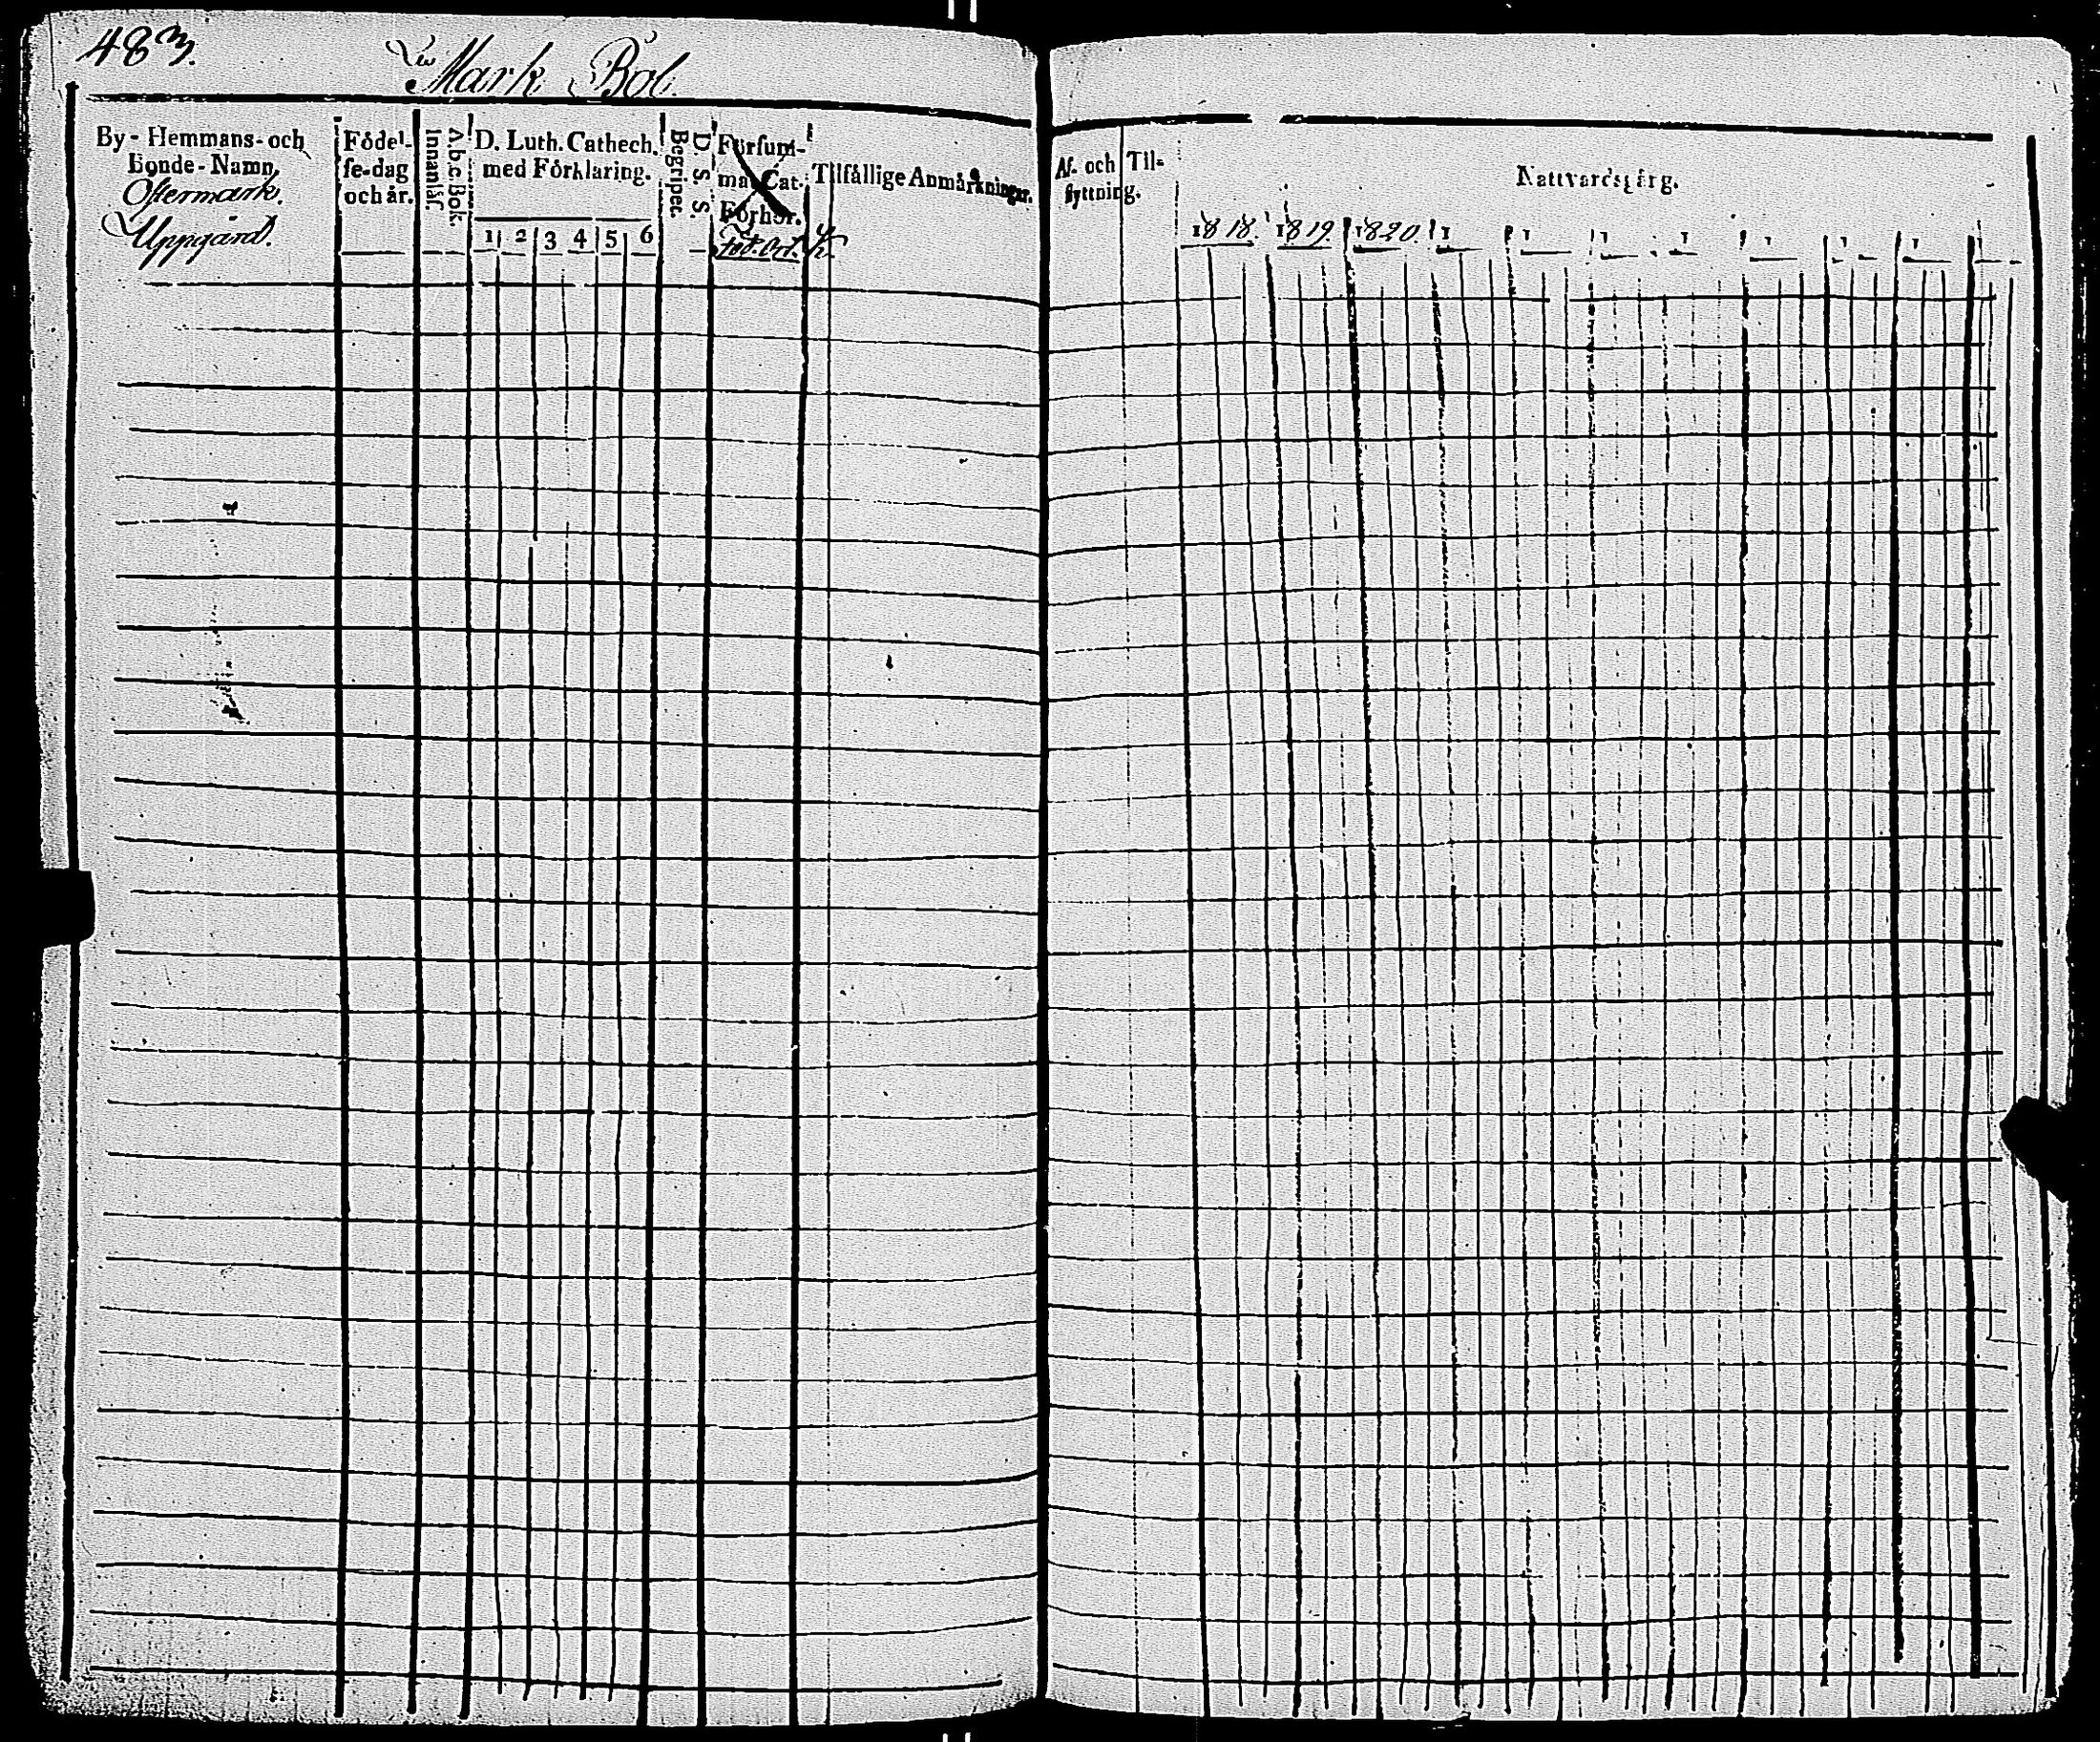 483.
Mark Bol.
By-Hemmans-och
Bonde-Namn,
Ostermark.
Uppgård.
Födel-
se-dag
och år.
A. b. c. Bok.
Innanläs.
D. Luth. Cathech.
med Förklaring.
1 2 3 4 5 6
D. S. S.
Begriper.
Försum-
mat Cat.
Förhör.
Föd. Ort.
Tilfällige Anmärkningar.
Af- och Til-
flyttning.
Nattvardsgång.
1818. 1819. 1820. 1 1 1 1 1 1 1